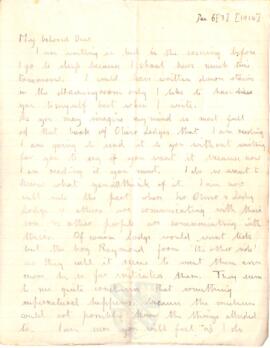 Dec 6 [?] [1916]
My beloved Dear
I am writing in bed in the evening before
I go to sleep because I shall have much time
tomorrow. I could have written down stairs
in the drawing room only I like to have
you to myself but when I write.
As you may imagine my mind is most
full of that book of Oliver Lodge's, that I am reading
I am going to send it to you without waiting
for you to say if you want it because now
I am reading it you must. I do so want to
know what you think of it. I am now
well into the part where he Oliver & Lady
Lodge & others are communicating with their
son, & other people are communicating with
theirs. Of course Lodge would
but the boy Raymond from the 'other side'
as they call it seems to want them even
more he is so for
be quite convincing that something
supernatural happens, because the medium
could not possibly know the things alluded
to. I am sure you will feel as I do